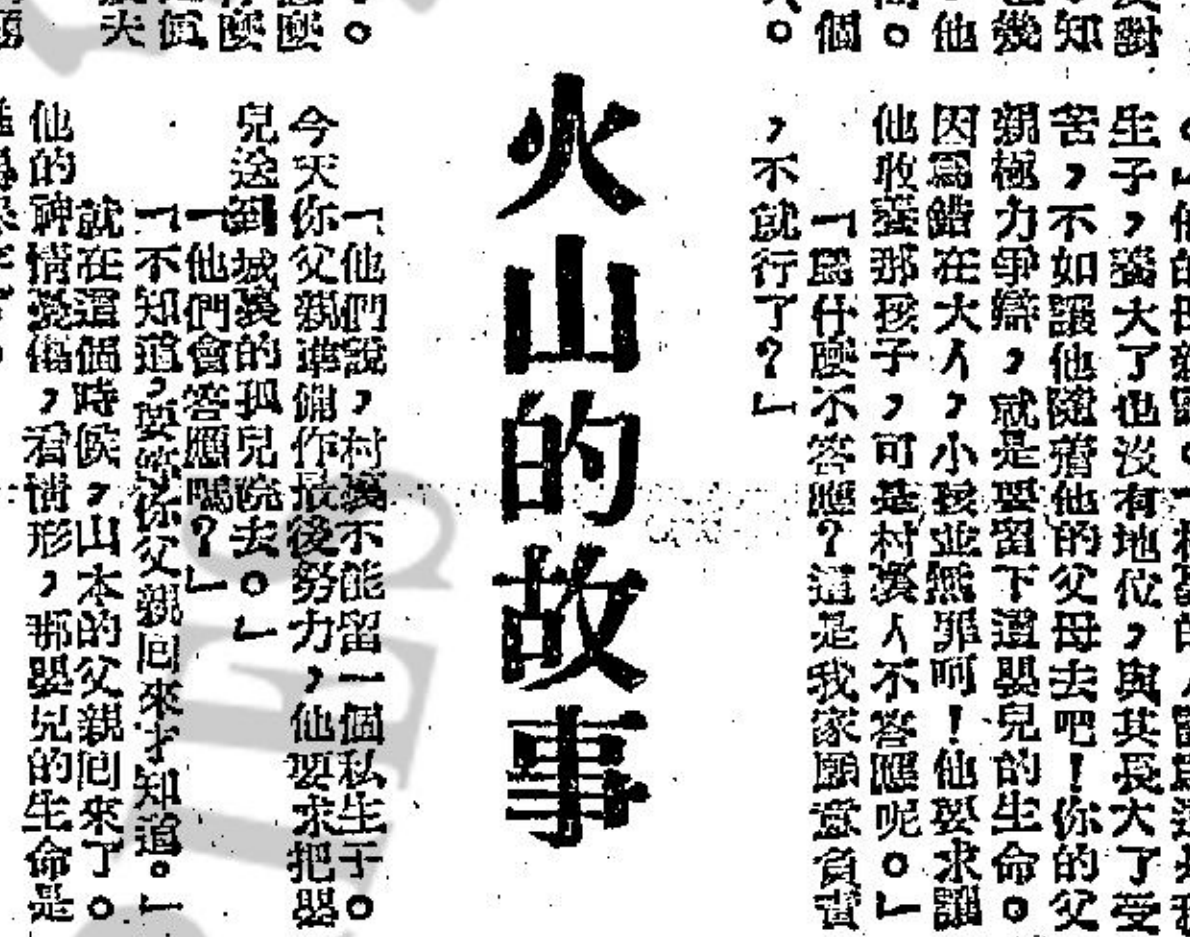 對
知
幾
他
。
個
生子，養大了也沒有地位，與其長大了受
苦，不如讓他隨着他的父母去吧！你的父
親極力爭辯，就是要留下這嬰兒的生命。
因爲錯在大人，小孩並無罪呵！他要求讓
他收養那孩子，可是村裏人不答應呢。」
「爲什麼不答應？這是我家願意負責
，不就行了？」
火山的故事
「他們說，村裏不能留一個私生子。
今天你父親準備作最後努力，他要求把嬰
兒送到城裏的孤兒院去。」
「他們會答應嗎？」
「不知道，要等你父親回來才知道。」
就在這個時候，山本的父親回來了。
他的神情憂傷，看情形，那嬰兒的生命是